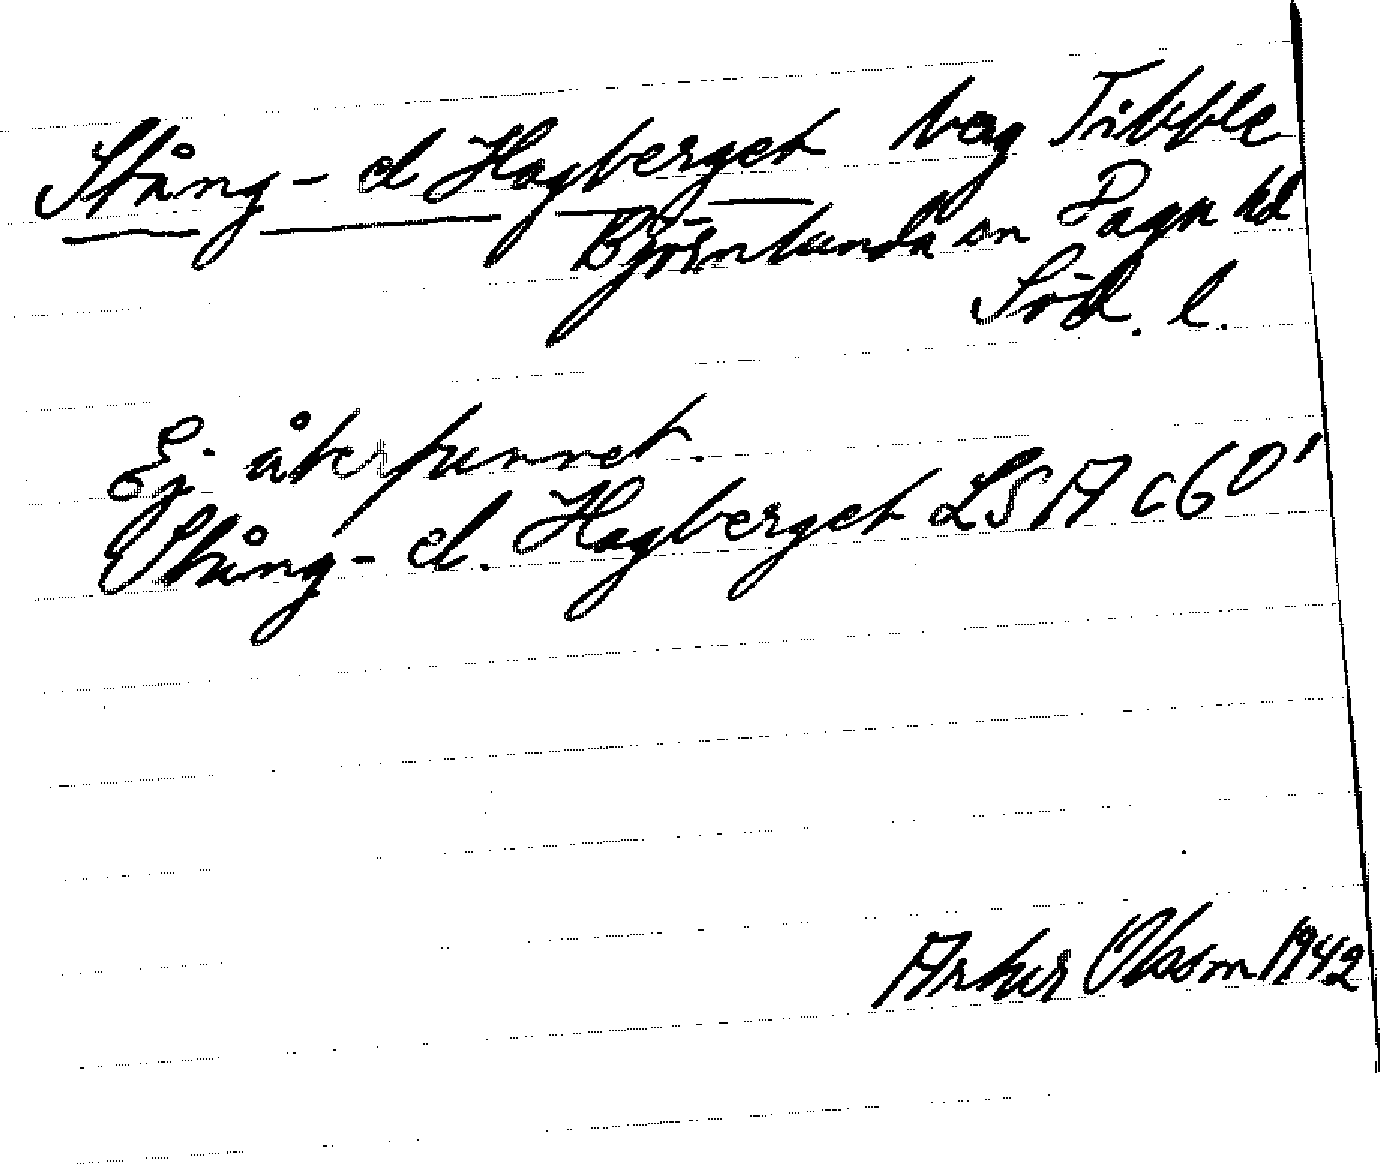 Stång- el Hagberget berg Tribble
Björnlunda sn Daga hd
Söd. l.
Ej återfunnet.
Stång- el. Hagberget LSA C6 0'
Artur Olsson 1942